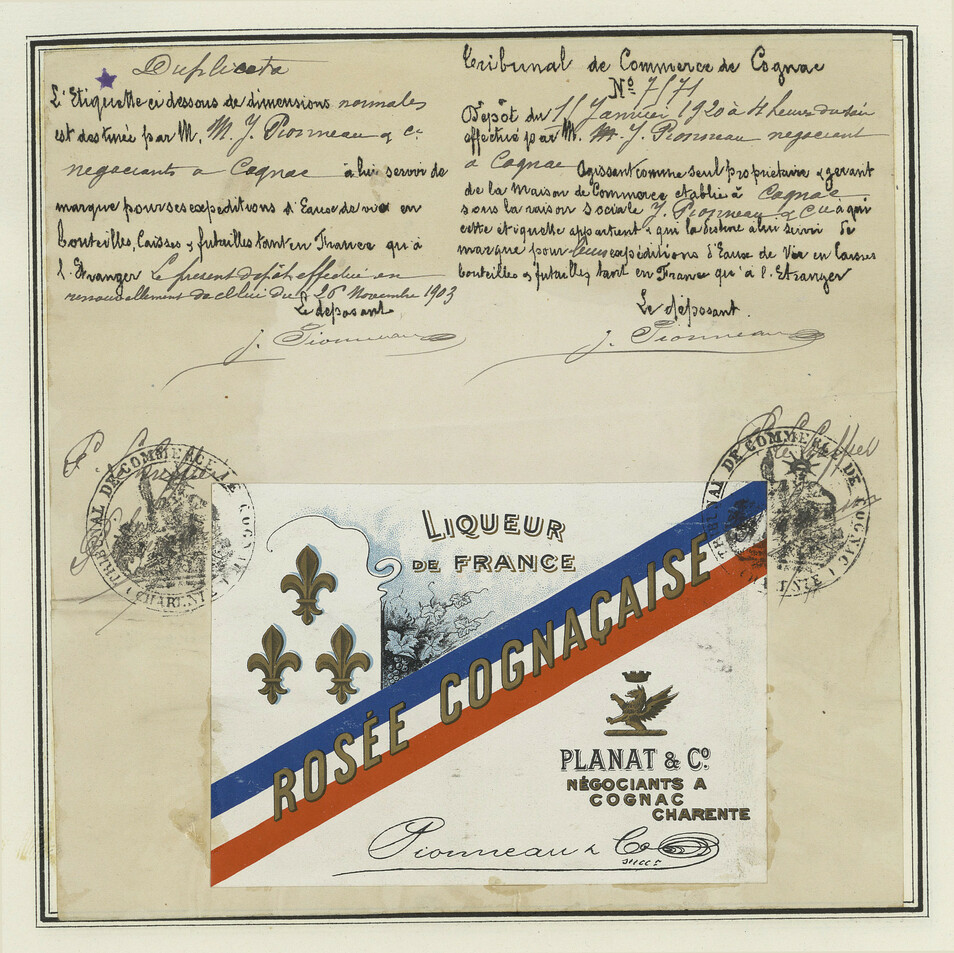 Duplicata
L'Etiquette ci dessous de dimensions normales
est destinée par M. M. J. Pionneau & Cie
negociants a Cognac à lui servir de
marque pour ses expeditions d'Eaux de vie en
bouteilles, Caisses & futailles tant en France qu'à
l'Etranger Le present dépôt effectué en
renouvellement de celui du 26 Novembre 1903
Le déposant
J. Pionneau
Tribunal de Commerce de Cognac
No 7171
Dépôt du Janvier 1920 à 4 heures du soir
effectué par M. M. J. Pionneau negociant
a Cognac Agissant comme seul propriétaire & gerant
de la Maison de Commerce etablie à Cognac
sous la raison sociale J. Pionneau & Cie à qui
cette étiquette appartient & qui la destine à lui servir de
marque pour leurs expéditions d'Eaux de Vie en Caisses
bouteilles & futailles tant en France qu'à l'Etranger
Le déposant
J. Pionneau
TRIBUNAL DE COMMERCE DE COGNAC
(CHARENTE)
TRIBUNAL DE COMMERCE DE COGNAC
(CHARENTE)
LIQUEUR
DE FRANCE
ROSÉE COGNAÇAISE
PLANAT & Co.
NÉGOCIANTS A
COGNAC
CHARENTE
Pionneau & Co
succrs